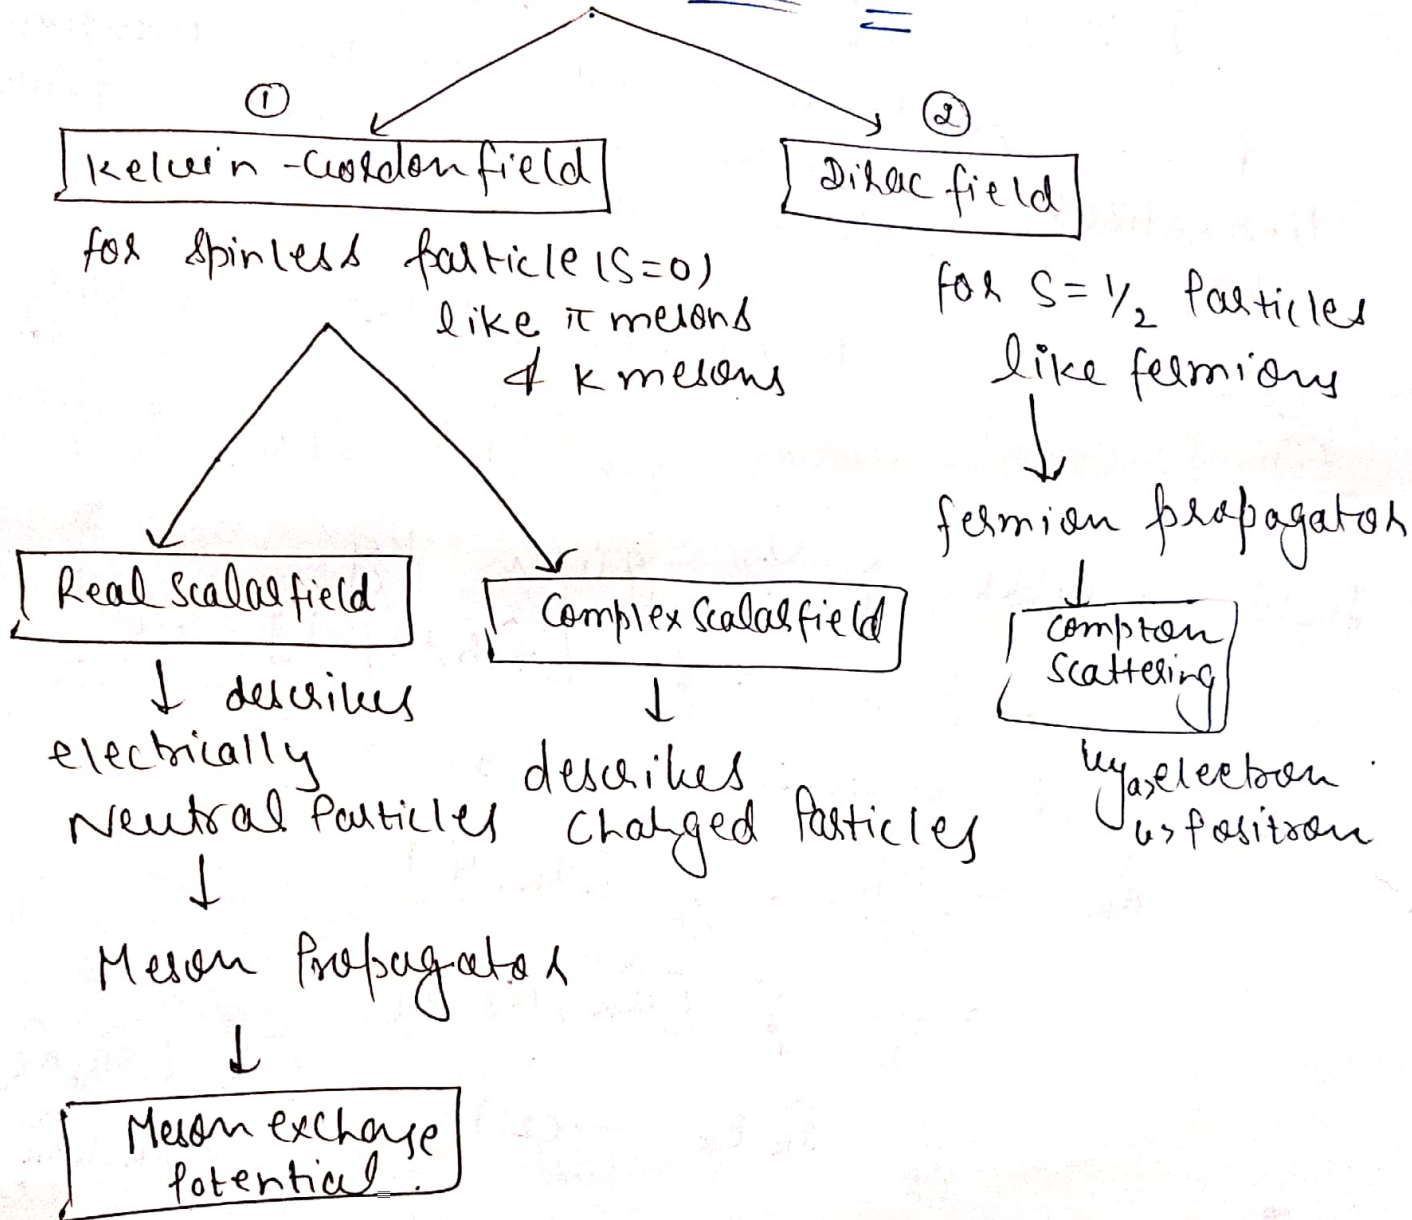 ①
Kelvin-Gordon field
for spinless particle (S=0)
like π mesons
& K mesons
Real Scalar field
↓ describes
electrically
Neutral Particles
↓
Meson Propagator
↓
Meson exchange
Potential.
Complex Scalar field
↓
describes
Charged Particles
②
Dirac field
for S=1/2 Particles
like fermions
↓
fermion propagator
↓
Compton
Scattering
by a> electron
b> Positron